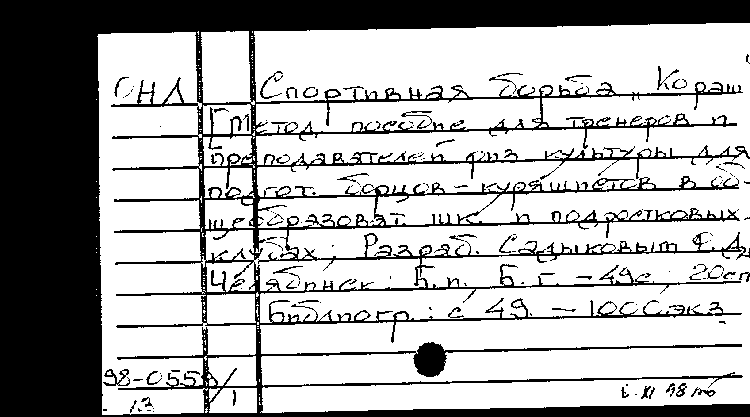 ОНЛ Спортивная борьба „Кораш"
[Метод. пособие для тренеров и
преподавателей физ культуры для
подгот. борцов-куряшистов в об-
щеобразоват. шк. и подростковых
клубах; Разраб. Садыковым Ф.Д.
Челябинск: Б.и., Б.г. - 49с; 20см
Библиогр.: с 49. - 1000экз
98-055
13 1 XI 98